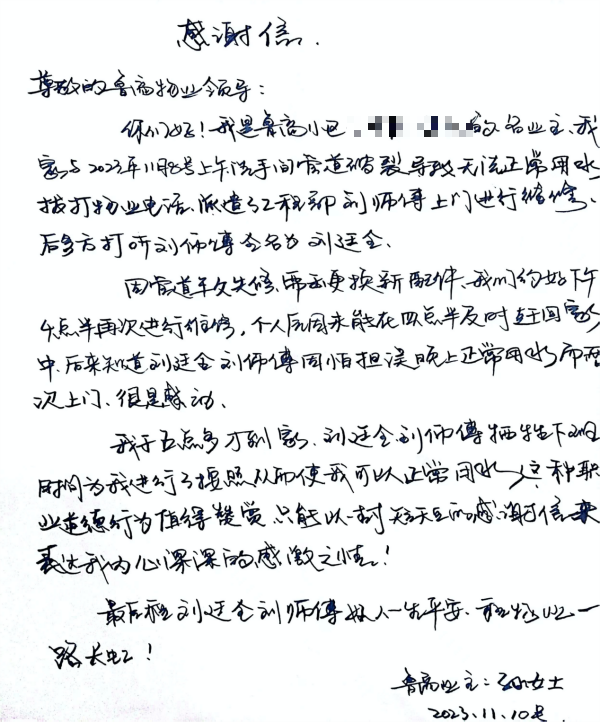 感谢信.
尊敬的鲁商物业领导:
你们好!我是鲁商小区 的一名业主、我
家与2023年11月8号上午洗手间管道破裂导致无法正常用水
拨打物业电话、派遣了工程部刘师傅上门进行维修、
后多方打听刘师傅全名为刘廷全.
因管道年久失修、需要更换新配件、我们约好下午
4点半再次进行维修,个人原因未能在四点半及时赶回家
中、后来知道刘廷全刘师傅因怕担误晚上正常用水而两
次上门、很是感动.
我于五点多才到家、刘廷全刘师傅牺牲下班
时间为我进行了接照从而使我可以正常用水、这种职
业道德行为值得赞赏只能以一封 的感谢信来
表达我内心深深的感激之情!
最后祝刘廷全刘师傅好人一生平安、祝物业一
路长虹!
鲁商业主:孙女士
2023.11.10号